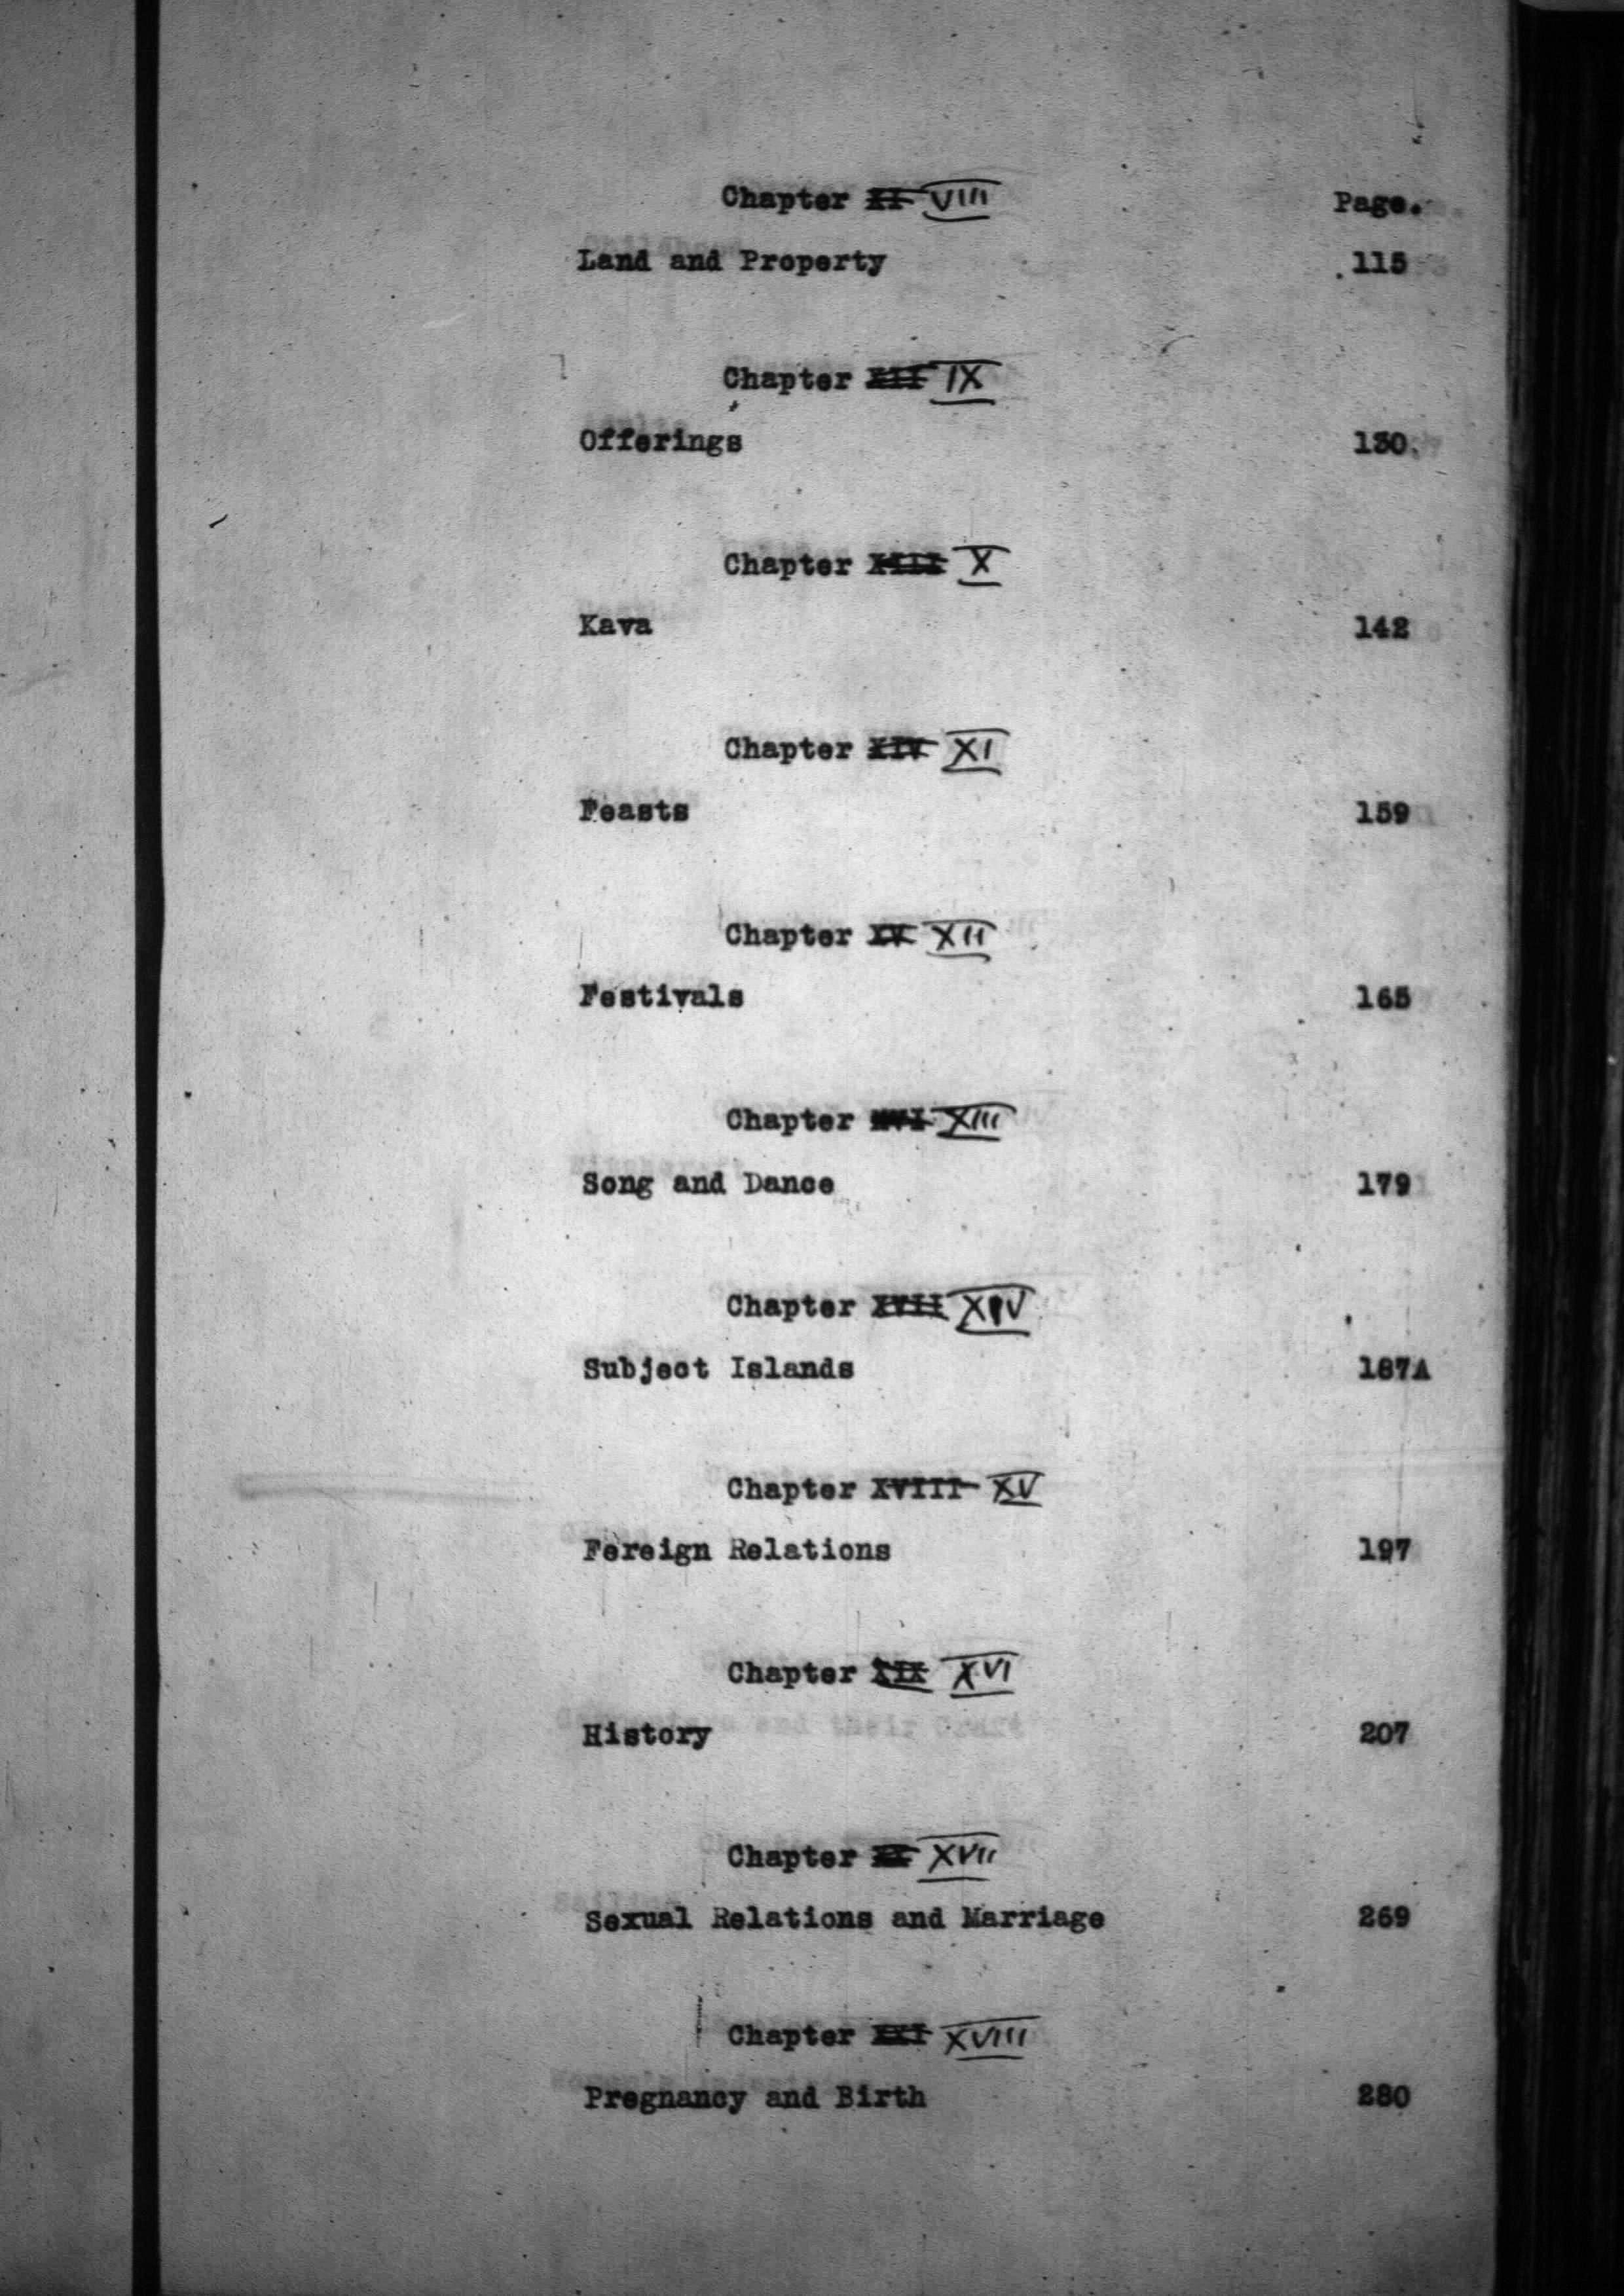 Chapter XI VIII Page.
Land and Property 115
Chapter XII IX
Offerings 130
Chapter XIII X
Kava 142
Chapter XIV XI
Feasts 159
Chapter XV XII
Festivals 165
Chapter XVI XIII
Song and Dance 179
Chapter XVII XIV
Subject Islands 187A
Chapter XVIII XV
Fereign Relations 197
Chapter XIX XVI
History 207
Chapter XX XVII
Sexual Relations and Marriage 269
Chapter XXI XVIII
Pregnancy and Birth 280